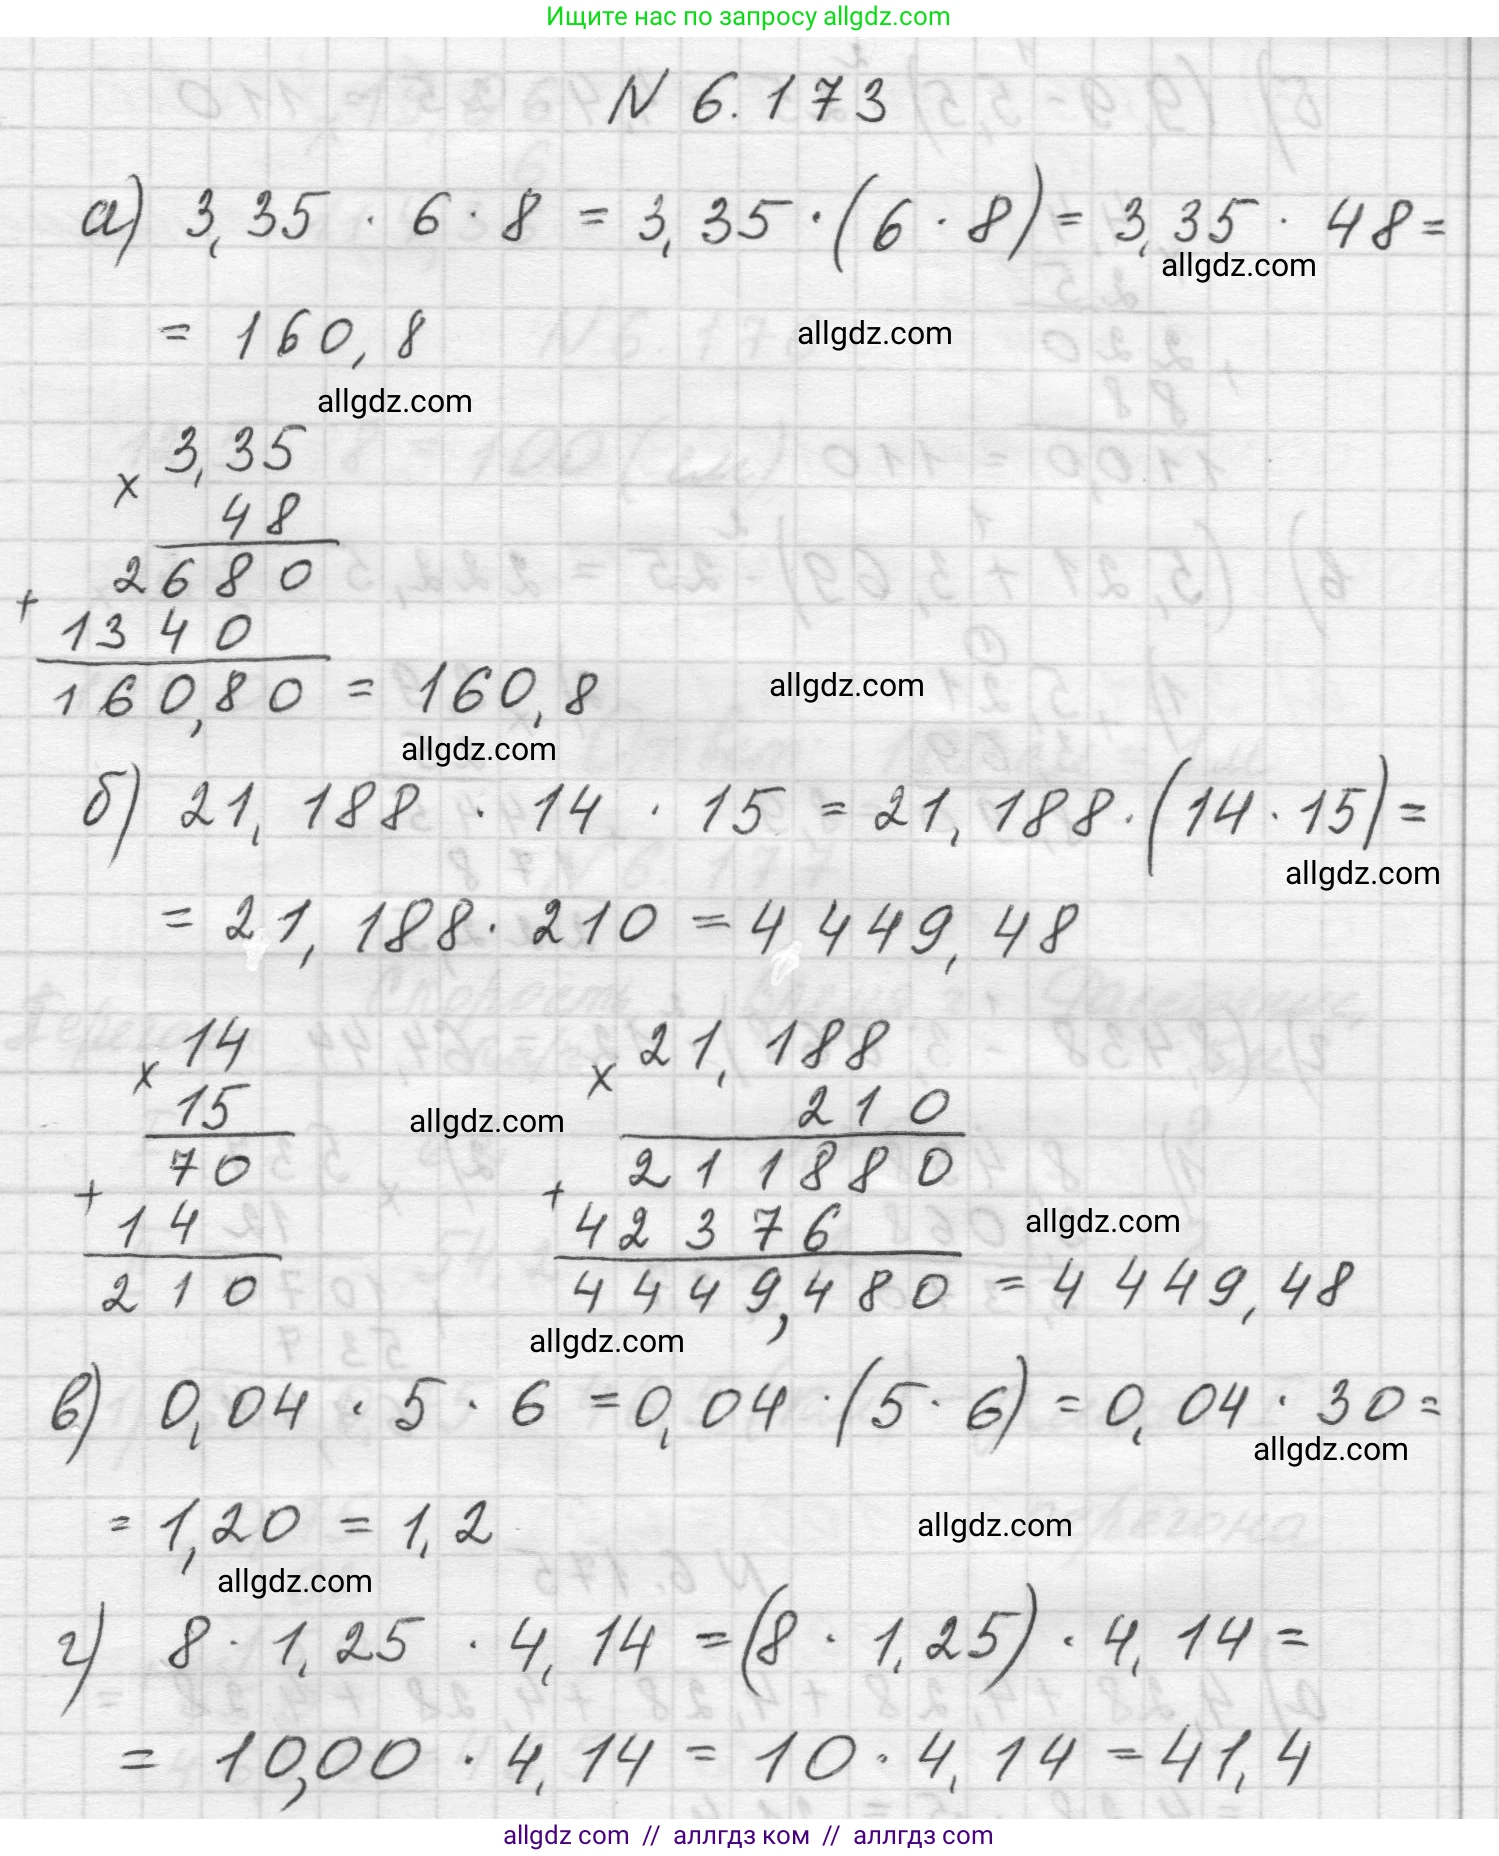 Ищите нас по запросу allgdz.com
N 6.173
а) 3,35 · 6 · 8 = 3,35 · (6 · 8) = 3,35 · 48 =
allgdz.com
= 160,8
allgdz.com
allgdz.com
3,35
×
48
2680
+
1340
160,80 = 160,8
allgdz.com
allgdz.com
б) 21,188 · 14 · 15 = 21,188 · (14 · 15) =
allgdz.com
= 21,188 · 210 = 4449,48
14 21,188
× ×
15 210
allgdz.com
70 211880
+ +
14 42376
allgdz.com
210 4449,480 = 4449,48
allgdz.com
в) 0,04 · 5 · 6 = 0,04 · (5 · 6) = 0,04 · 30 =
allgdz.com
= 1,20 = 1,2
allgdz.com
allgdz.com
г) 8 · 1,25 · 4,14 = (8 · 1,25) · 4,14 =
= 10,00 · 4,14 = 10 · 4,14 = 41,4
allgdz com // аллгдз ком // аллгдз com